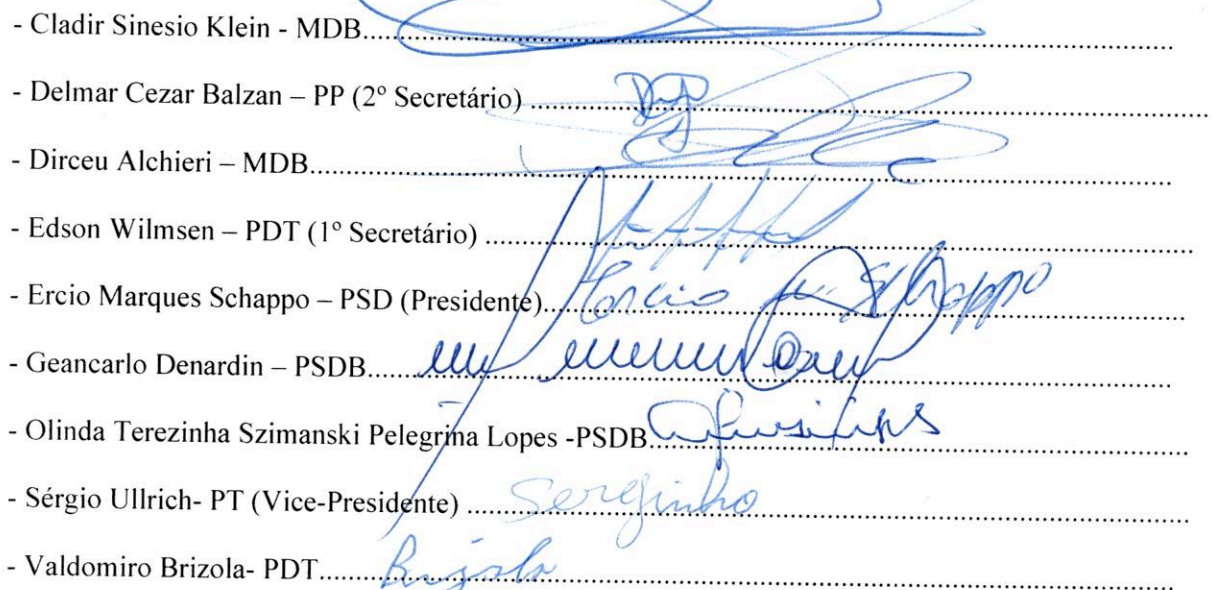 - Cladir Sinesio Klein - MDB
- Delmar Cezar Balzan – PP (2º Secretário)
- Dirceu Alchieri – MDB
- Edson Wilmsen – PDT (1º Secretário)
- Ercio Marques Schappo – PSD (Presidente) Ercio Schappo
- Geancarlo Denardin – PSDB
- Olinda Terezinha Szimanski Pelegrina Lopes -PSDB
- Sérgio Ullrich- PT (Vice-Presidente) Serginho
- Valdomiro Brizola- PDT Brizola